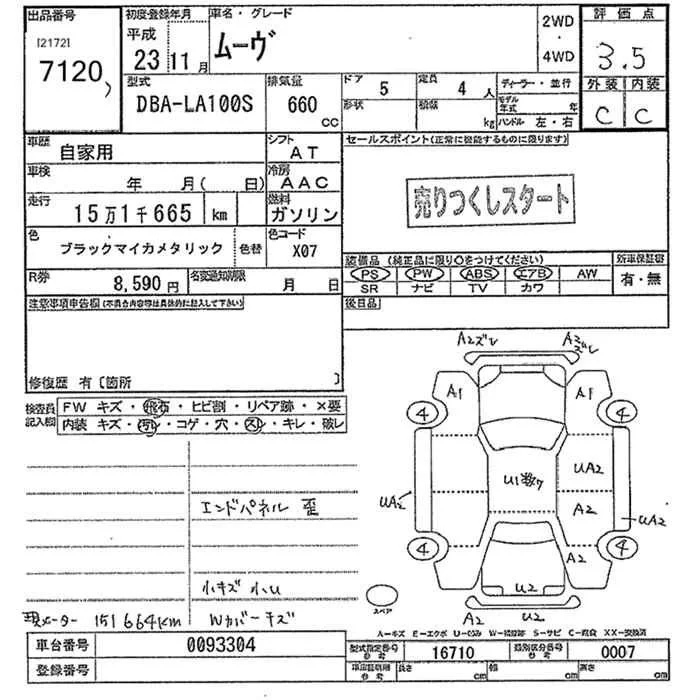 出品番号 初度登録年月 車名・グレード 2WD・4WD 評価点
[21721
7120
平成
23 11月 ムーヴ 3.5
型式 排気量 ドア 5 定員 4人 ディーラー・並行 外装 内装
DBA-LA100S 660 CC 形状 積載 kg モデル年式 年 ハンドル 左・右 C C
車歴 自家用 シフト AT セールスポイント(正常に機能するものに限ります)
車検 年 月( 日) 冷房 AAC
売りつくしスタート
走行 15万1千665 km 燃料 ガソリン
色 ブラックマイカメタリック 色替 色コード X07
装備品 (純正品に限り○をつけてください) 新車保証書
PS PW ABS エアB AW 有・無
SR ナビ TV カワ
R券 8,590円 名変通知期限 月 日
注意事項申告欄(不具合内容等は具体的に記入して下さい) 後日品
修復歴 有〔箇所 〕
検査員記入欄 FW キズ・飛石・ヒビ割・リペア跡・×要
内装 キズ・汚れ・コゲ・穴・スレ・キレ・破レ
A2ズレ
A1 A1
4 4
U1数ヶ UA2
UA2 A2 UA2
4 4
A2
U2
A2 U2
エンドパネル 歪
小キズ 小U
現メーター 151664km Wカバーキズ
スペア
A−キズ E−エクボ U−凹み W−補修跡 S−サビ C−腐食 XX−交換済
車台番号 0093304 型式指定番号 参考 16710 類別区分番号 参考 0007
登録番号 車庫証明用 参考 長さ cm 幅 cm 高さ cm